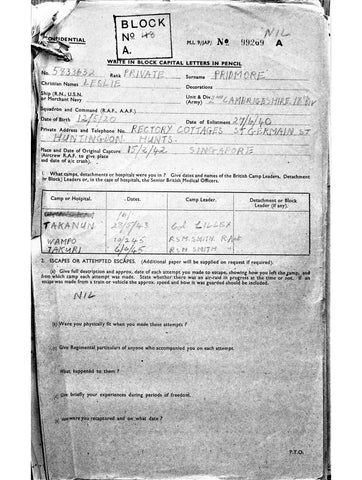 BLOCK
No 48
A.
NIL
CONFIDENTIAL
M.I. 9/JAP/ No 99269 A
WRITE IN BLOCK CAPITAL LETTERS IN PENCIL
No. 5933632 Rank PRIVATE Surname PRIDMORE
Christian Names LESLIE Decorations
Ship (R.N., U.S.N. or Merchant Navy) Unit & Div. (Army) CAMBRIDGSHIRE 18 DIV
Squadron and Command (R.A.F., A.A.F.)
Date of Birth 12/5/20 Date of Enlistment 27/6/40
Private Address and Telephone No. RECTORY COTTAGES ST GERMAIN ST
HUNTINGDON HUNTS.
Place and Date of Original Capture 15/2/42 SINGAPORE
(Aircrew R.A.F. to give place and date of each crash)
1. What camps, detachments or hospitals were you in? Give dates and names of the British Camp Leaders, Detachment (or Block) Leaders or, in the case of hospitals, the Senior British Medical Officers.
Camp or Hospital. Dates. Camp Leader. Detachment or Block Leader (if any).
TAKANUN 23/5/43 Col LILLEY
WAMPO R.S.M. SMITH
TAMURI R.S.M. SMITH
2. ESCAPES OR ATTEMPTED ESCAPES. (Additional paper will be supplied on request if required).
(a) Give full description and approx. date of each attempt you made to escape, showing how you left the camp, and from which camp each attempt was made. State whether there was an air-raid in progress at the time or not. If an escape was made from a train or vehicle the approx. speed and how it was guarded should be included.
NIL
(b) Were you physically fit when you made these attempts?
(c) Give Regimental particulars of anyone who accompanied you on each attempt.
What happened to them?
(d) Give briefly your experiences during periods of freedom.
(e) How were you recaptured and on what date?
P.T.O.